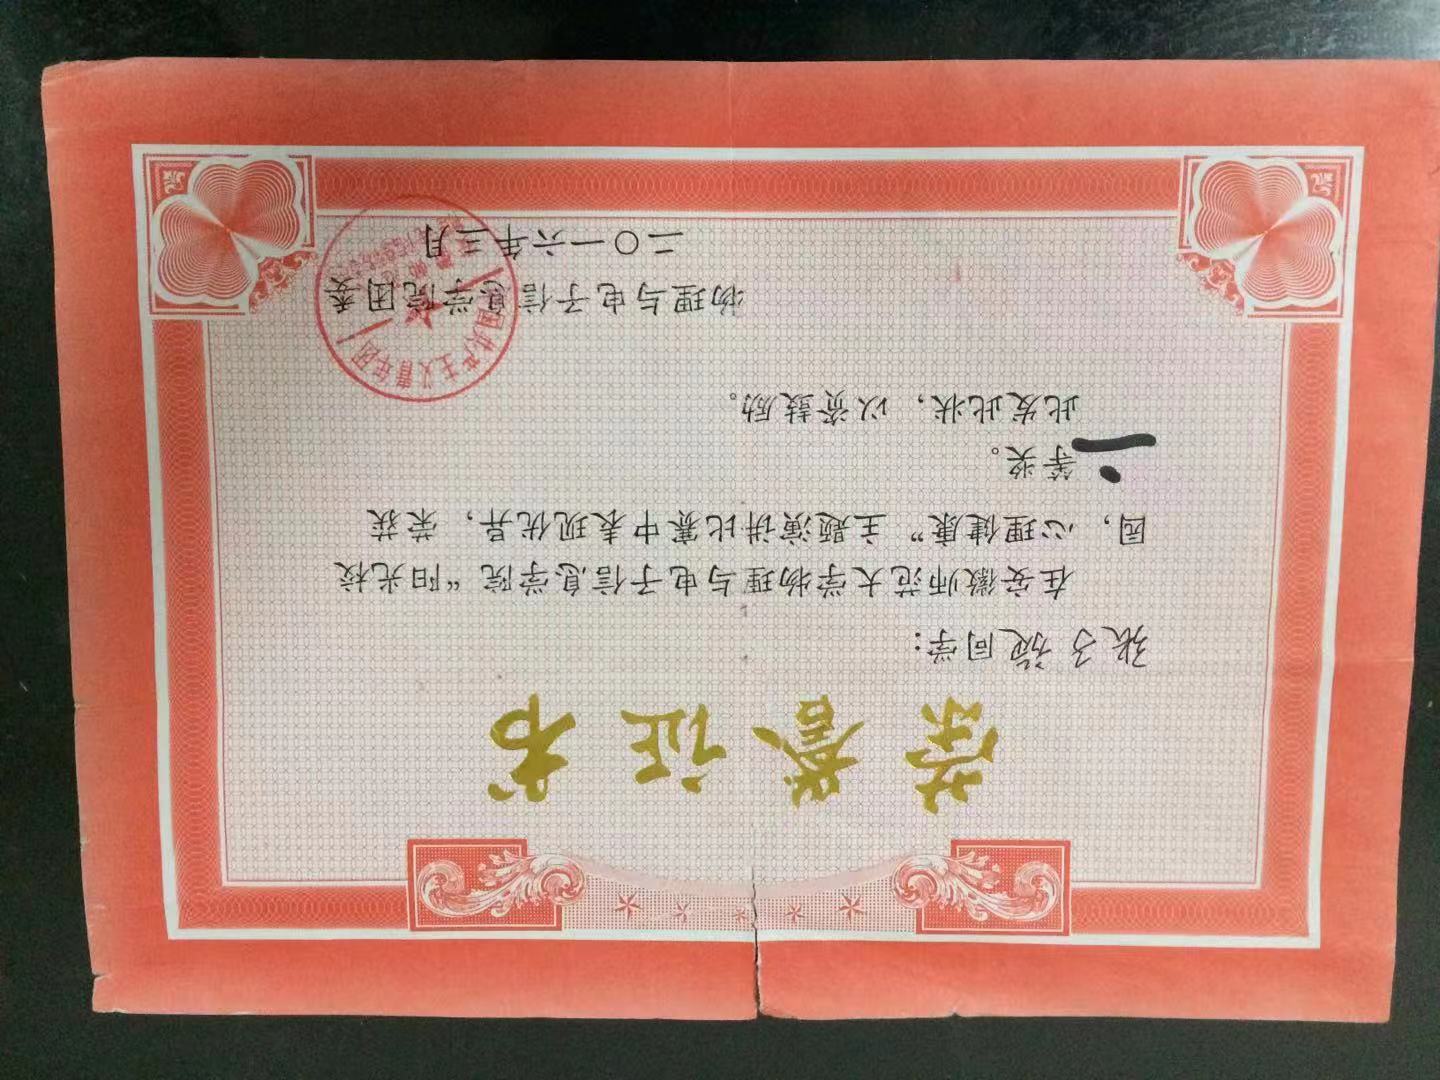 荣誉证书
张子旋同学：
在安徽师范大学物理与电子信息学院“阳光校
园，心理健康”主题演讲比赛中表现优异，荣获
二等奖。
此发此状，以资鼓励。
中国共产主义青年团
物理与电子信息学院团委
二〇一六年三月